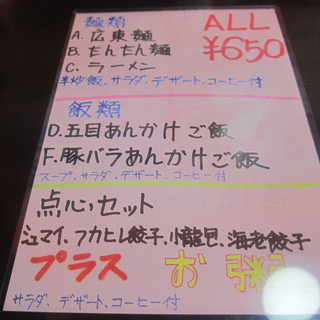 麺類
ALL
A. 広東麺
¥650
B. たんたん麺
C. ラーメン
半炒飯、サラダ、デザート、コーヒー付
飯類
D. 五目あんかけご飯
F. 豚バラあんかけご飯
スープ、サラダ、デザート、コーヒー付
点心セット
シュマイ、フカヒレ餃子、小龍包、海老餃子
プラス お粥
サラダ、デザート、コーヒー付